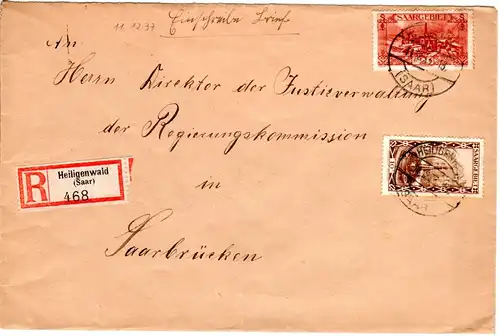 11.12.37
Einschreibe Brief
SAARGEBIET
An
(SAAR)
Herrn Direktor der Justizverwaltung
der Regierungskommission
SAARGEBIET
R
Heiligenwald
(Saar)
468
in
Saarbrücken